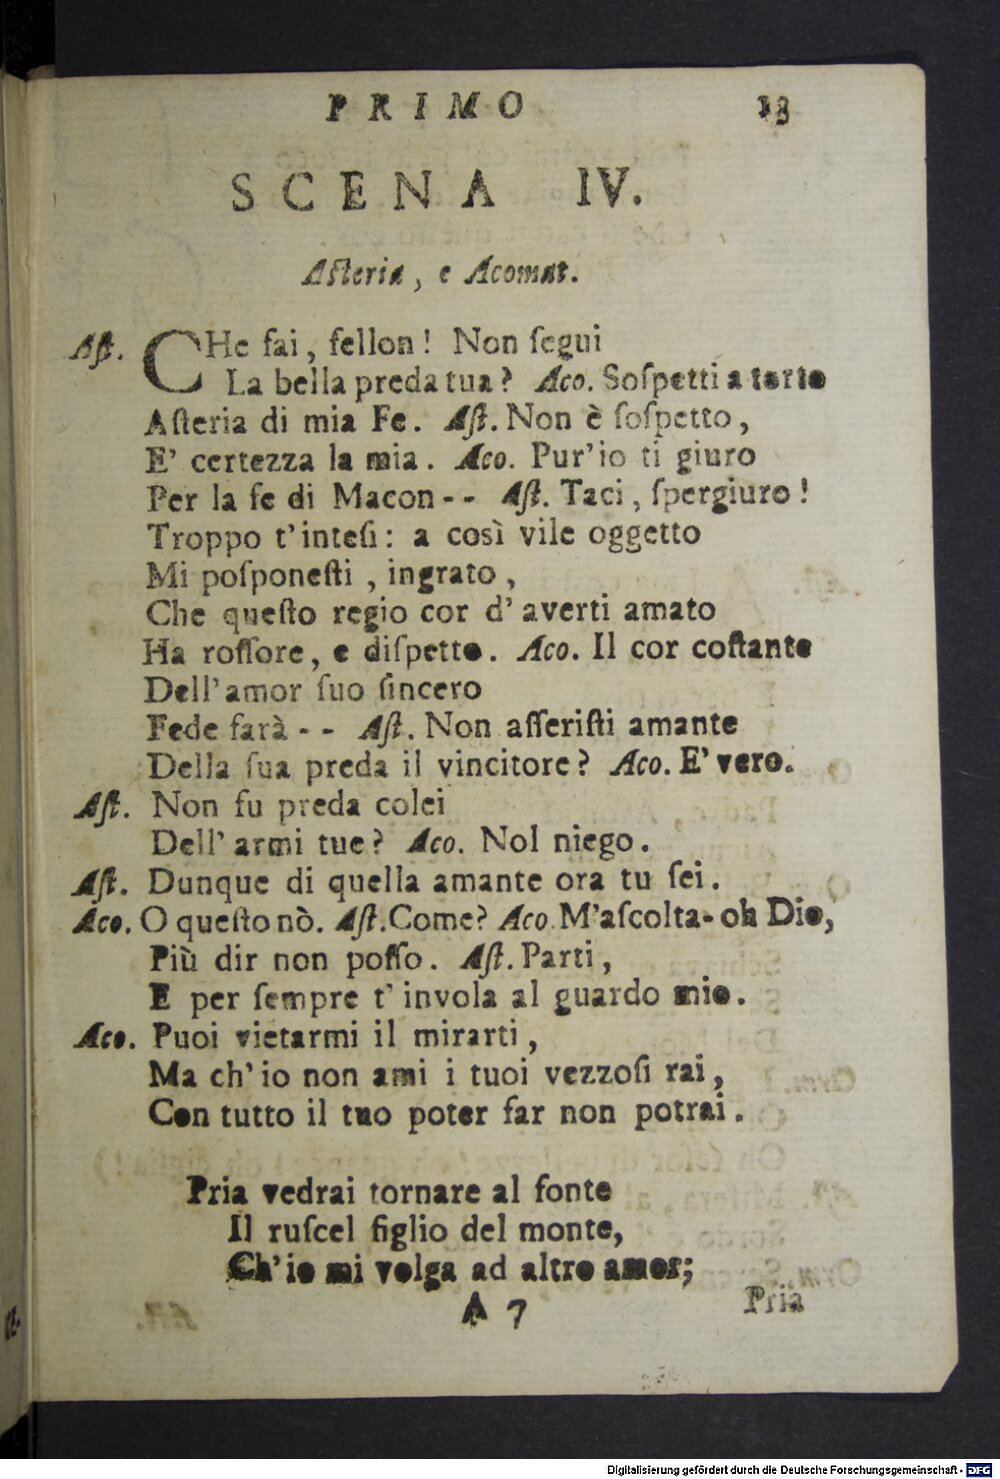 PRIMO 13
SCENA IV.
Aſteria, e Acomat.
Aſt. CHe fai, fellon! Non ſegui
La bella preda tua? Aco. Soſpetti a torto
Aſteria di mia Fe. Aſt. Non è ſoſpetto,
E' certezza la mia. Aco. Pur'io ti giuro
Per la fe di Macon-- Aſt. Taci, ſpergiuro!
Troppo t'inteſi: a così vile oggetto
Mi poſponeſti, ingrato,
Che queſto regio cor d'averti amato
Ha roſſore, e diſpetto. Aco. Il cor coſtante
Dell'amor ſuo ſincero
Fede farà-- Aſt. Non aſſeriſti amante
Della ſua preda il vincitore? Aco. E' vero.
Aſt. Non fu preda colei
Dell'armi tue? Aco. Nol niego.
Aſt. Dunque di quella amante ora tu ſei.
Aco. O queſto nò. Aſt. Come? Aco. M'aſcolta- oh Dio,
Più dir non poſſo. Aſt. Parti,
E per ſempre t'invola al guardo mio.
Aco. Puoi vietarmi il mirarti,
Ma ch'io non ami i tuoi vezzoſi rai,
Con tutto il tuo poter far non potrai.
Pria vedrai tornare al fonte
Il ruſcel figlio del monte,
Ch'io mi volga ad altro amor;
A 7 Pria
Digitalisierung gefördert durch die Deutsche Forschungsgemeinschaft - DFG